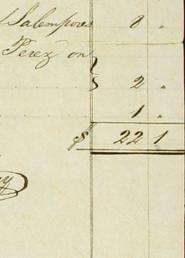 Salempores 8 "
Perez on
2 "
1 "
$ 22 1